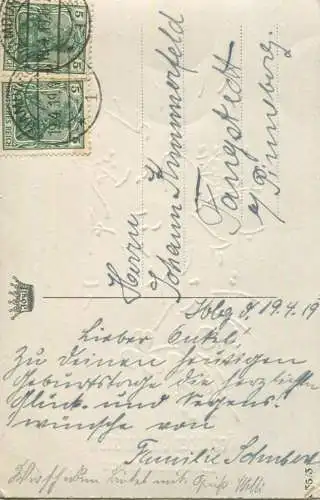 Herrn
Johann Kummerfeld
Tangstedt
b/ Pinneberg.
Hbg d, 19.4.19
Lieber Onkel!
Zu deinem heutigen
Geburtstage die herzlichsten
Glück- und Segens-
wünsche von
Familie Schubert
mit Gruß Willi
5 5
5 5